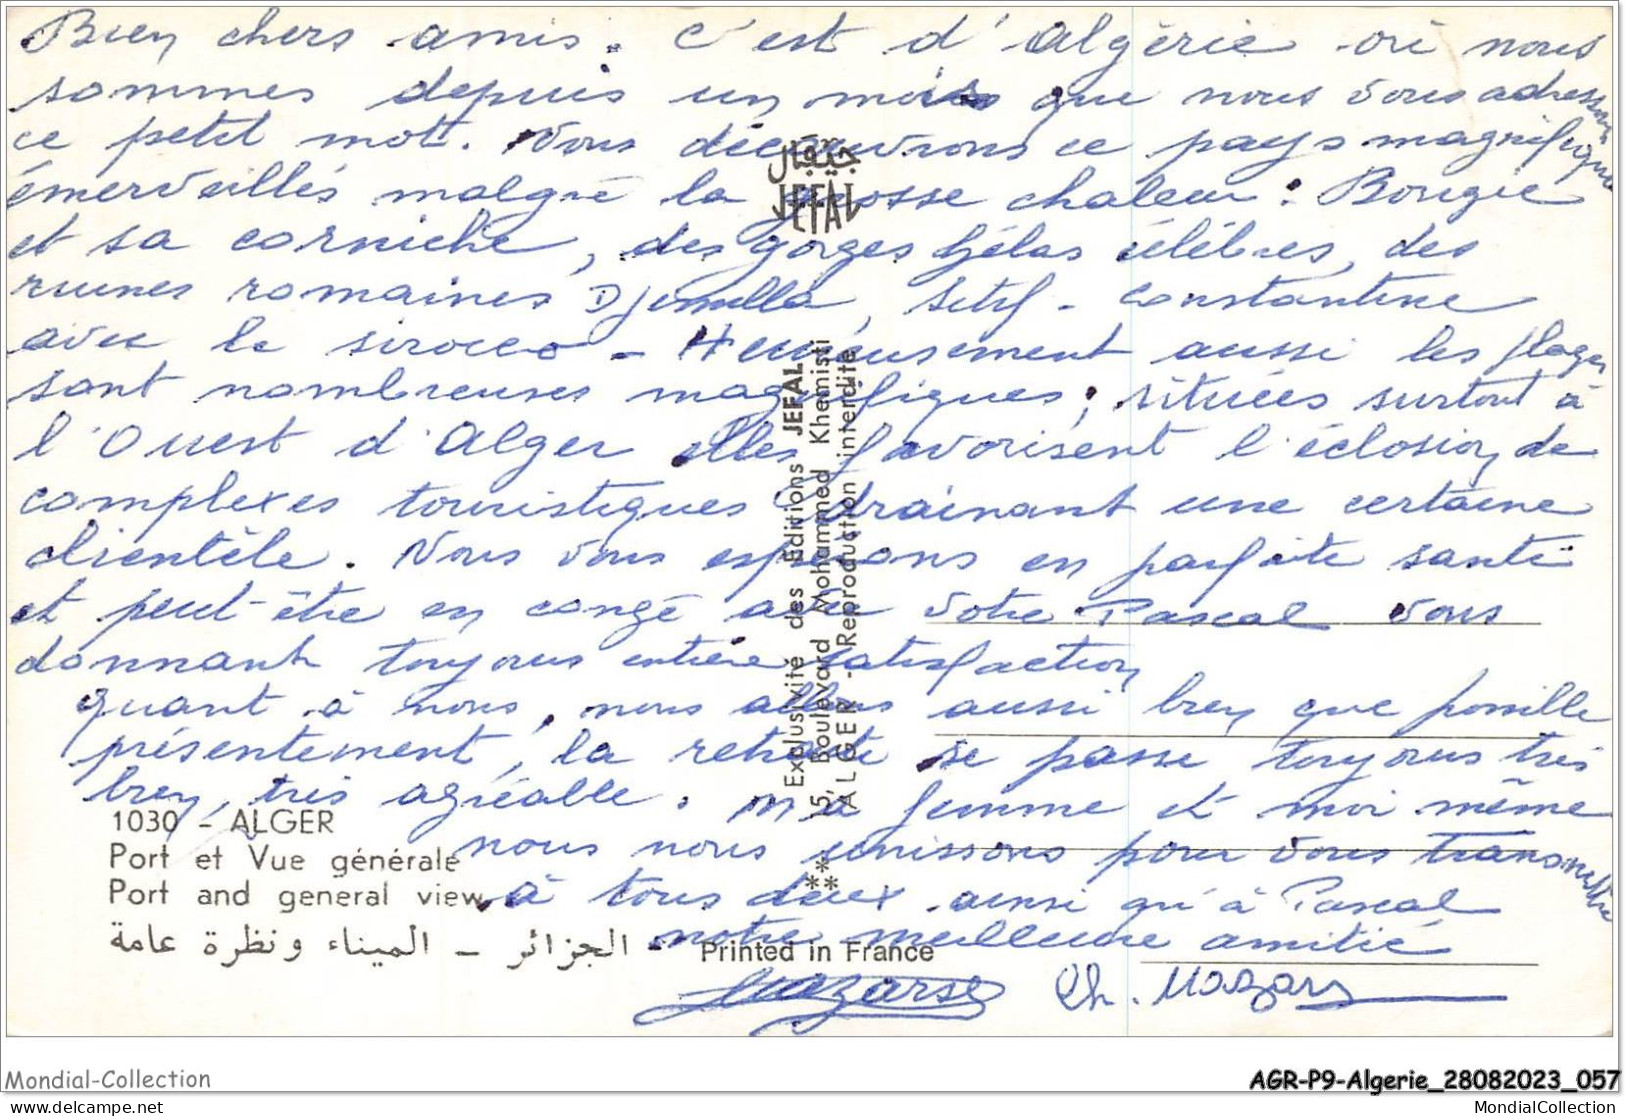 Bien chers amis. C'est d'Algérie où nous
sommes depuis un mois que nous vous adressons
ce petit mot. Nous découvrons ce pays magnifique
émerveillés malgré la grosse chaleur : Bougie
et sa corniche, des gorges hélas célèbres, des
ruines romaines Djemilla, Setif - Constantine
avec le sirocco - Heureusement aussi les plages
sont nombreuses magnifiques ; situées surtout à
l'Ouest d'Alger elles favorisent l'éclosion de
complexes touristiques drainant une certaine
clientèle. Nous vous espérons en parfaite santé
et peut-être en congé avec votre Pascal vous
donnant toujours entière satisfaction
quant à nous, nous allons aussi bien que possible
présentement, la retraite se passe toujours très
bien, très agréable. Ma femme et moi même
nous nous unissons pour vous transmettre
à tous deux ainsi qu'à Pascal
notre meilleure amitié
Ch. Mazars
جيفال
JEFAL
Exclusivité des Editions JEFAL
15, Boulevard Mohammed Khemisti
ALGER - Reproduction interdite
**
**
1030 - ALGER
Port et Vue générale
Port and general view
الجزائر - الميناء ونظرة عامة
Printed in France
Mondial-Collection
AGR-P9-Algerie_28082023_057
MondialCollection
MondialCollection